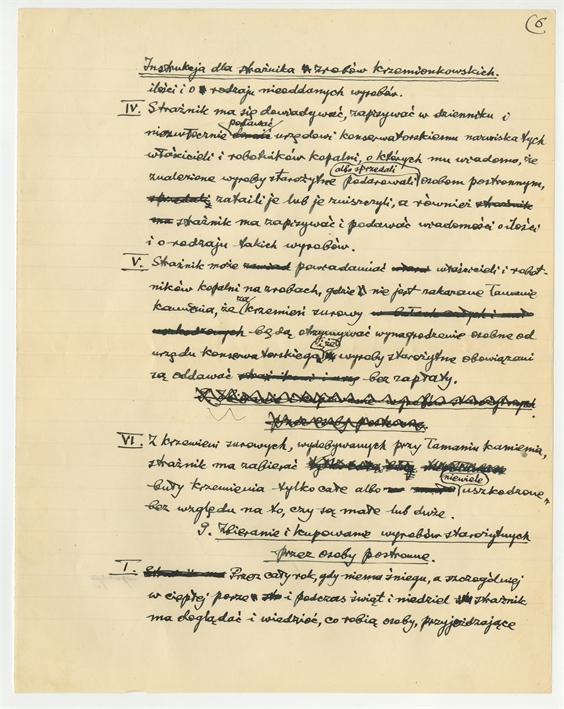 6
Instrukcja dla strażnika zrobów krzemionkowskich.
ilości i o rodzaju nieoddanych wyrobów.
IV. Strażnik ma się dowiadywać, zapisywać w dzienniku i
podawać
niezwłocznie urzędowi konserwatorskiemu nazwiska tych
właścicieli i robotników kopalni, o których mu wiadomo, że
albo sprzedali
znalezione wyroby starożytne podarowali osobom postronnym,
sprzedali, zataili je lub je zniszczyli, a również strażnik
ma strażnik ma zapisywać i podawać wiadomości o ilości
i o rodzaju takich wyrobów.
V. Strażnik może powiadamiać właścicieli i robot-
ników kopalni na zrobach, gdzie nie jest zakazane łamanie
za
kamienia, że krzemień surowy
będą otrzymywać wynagrodzenie osobne od
i że
urzędu konserwatorskiego wyroby starożytne obowiązani
są oddawać bez zapłaty.
przez osoby postronne.
VI. Z krzemieni surowych, wydobywanych przy łamaniu kamienia,
strażnik ma zabierać
niewiele
buły krzemienia tylko całe albo uszkodzone,
bez względu na to, czy są małe lub duże.
9. Zbieranie i kupowanie wyrobów starożytnych
przez osoby postronne.
I. Strażnik ma Przez cały rok, gdy niema śniegu, a szczególniej
w ciepłej porze i podczas świąt i niedziel strażnik
ma doglądać i wiedzieć, co robią osoby, przyjeżdzające